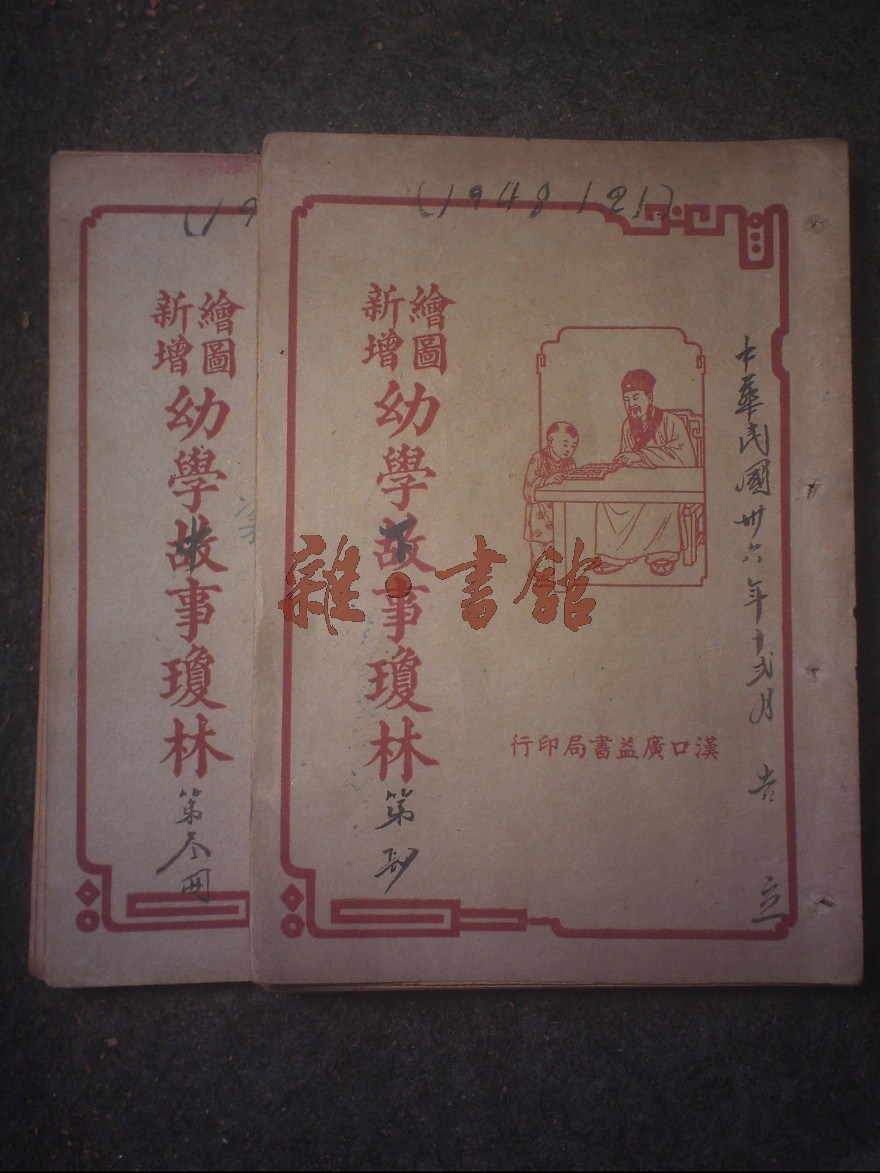 (1948.121)
中華民國卅六年十弍月 吉 立
繪圖
新增
幼學故事瓊林
下
第
漢口廣益書局印行
(19
繪圖
新增
幼學故事瓊林
第叁冊
雜·書館